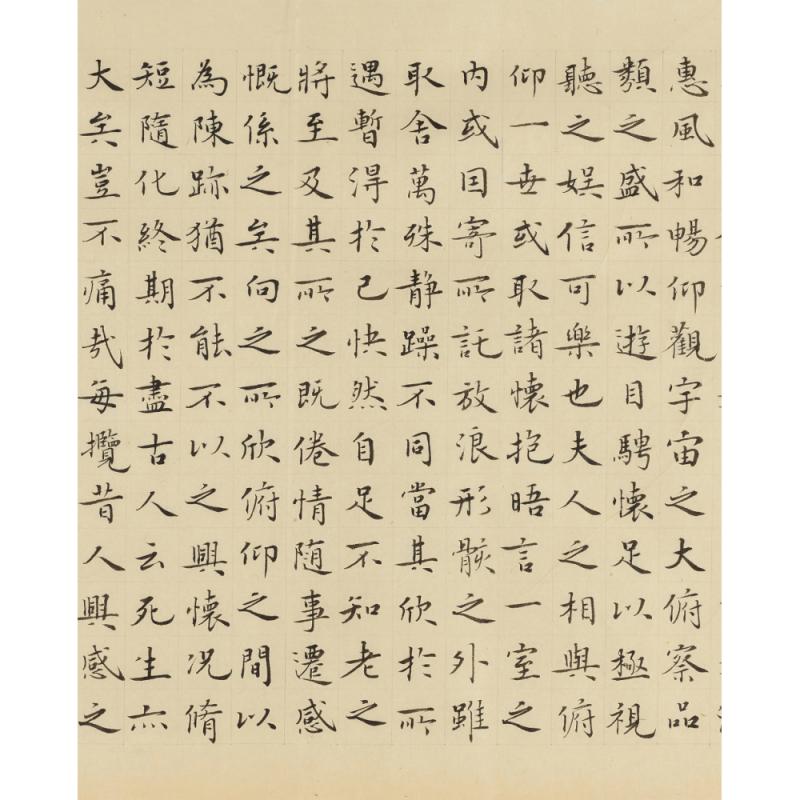 惠風和暢仰觀宇宙之大俯察品
類之盛所以遊目騁懷足以極視
聽之娛信可樂也夫人之相與俯
仰一世或取諸懷抱晤言一室之
內或因寄所託放浪形骸之外雖
取舍萬殊静躁不同當其欣於所
遇暫得於己快然自足不知老之
將至及其所之既倦情隨事遷感
慨係之矣向之所欣俯仰之間以
為陳跡猶不能不以之興懷況脩
短隨化終期於盡古人云死生亦
大矣豈不痛哉每攬昔人興感之